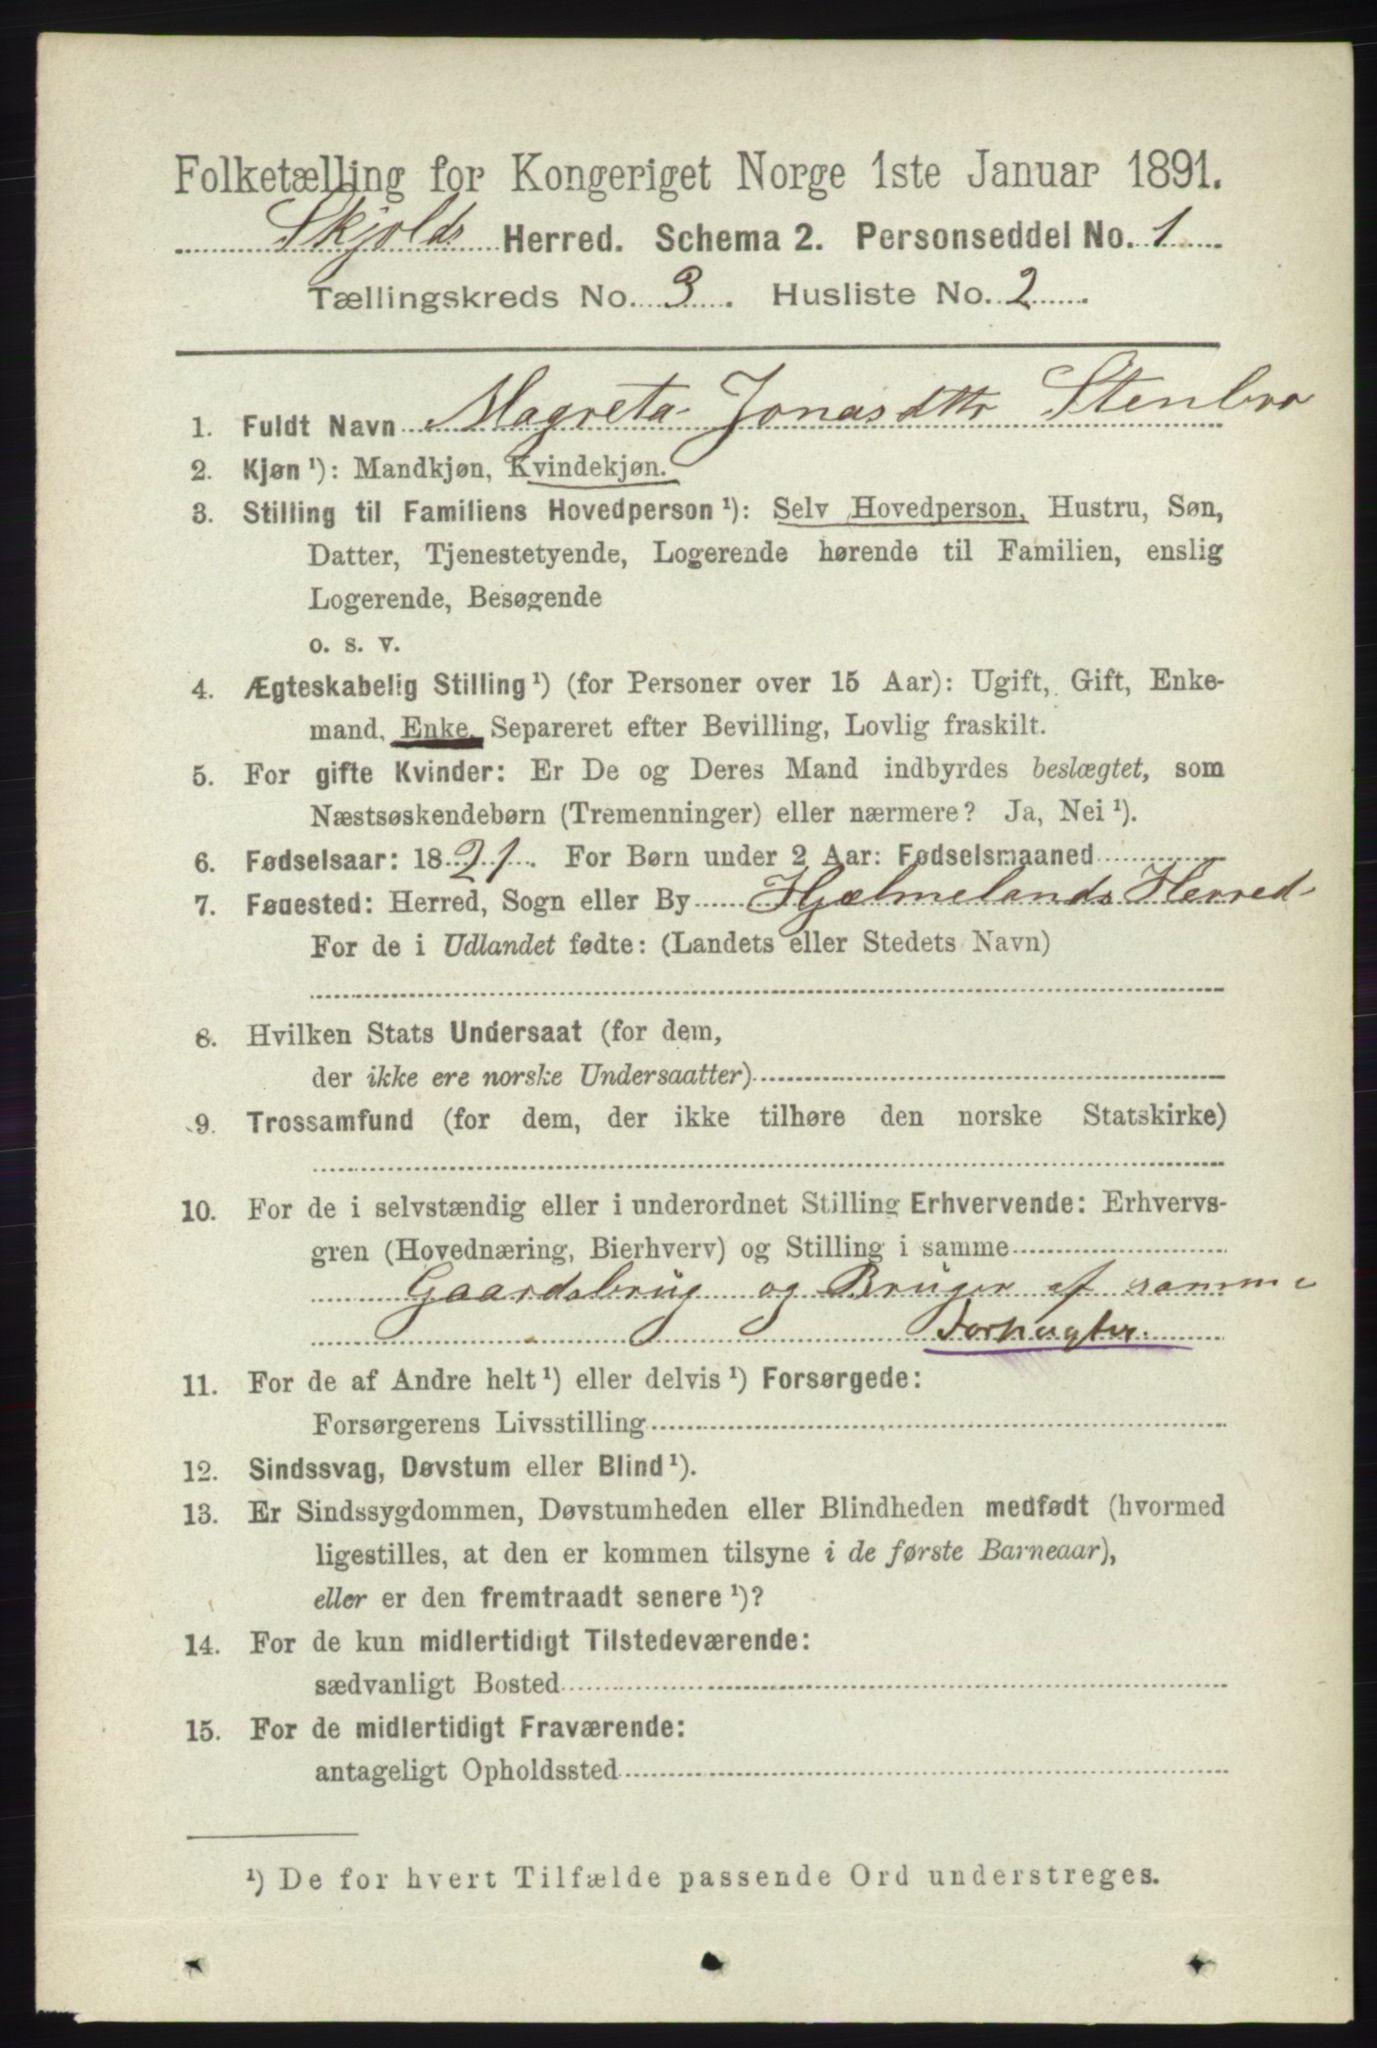 Folketælling for Kongeriget Norge 1ste Januar 1891.
Skjolds Herred. Schema 2. Personseddel No. 1
Tællingskreds No. 3. Husliste No. 2
1. Fuldt Navn Magreta Jonasdttr Stenbro
2. Kjøn ¹): Mandkjøn, Kvindekjøn.
3. Stilling til Familiens Hovedperson ¹): Selv Hovedperson, Hustru, Søn,
Datter, Tjenestetyende, Logerende hørende til Familien, enslig
Logerende, Besøgende
o. s. v.
4. Ægteskabelig Stilling ¹) (for Personer over 15 Aar): Ugift, Gift, Enke-
mand, Enke, Separeret efter Bevilling, Lovlig fraskilt.
5. For gifte Kvinder: Er De og Deres Mand indbyrdes beslægtet, som
Næstsøskendebørn (Tremenninger) eller nærmere? Ja, Nei ¹).
6. Fødselsaar: 1821. For Børn under 2 Aar: Fødselsmaaned
7. Fødested: Herred, Sogn eller By Hjælmelands Herred
For de i Udlandet fødte: (Landets eller Stedets Navn)
8. Hvilken Stats Undersaat (for dem,
der ikke ere norske Undersaatter)
9. Trossamfund (for dem, der ikke tilhøre den norske Statskirke)
10. For de i selvstændig eller i underordnet Stilling Erhvervende: Erhvervs-
gren (Hovednæring, Bierhverv) og Stilling i samme
Gaardsbrug og Bruger af samme
Forpagter.
11. For de af Andre helt ¹) eller delvis ¹) Forsørgede:
Forsørgerens Livsstilling
12. Sindssvag, Døvstum eller Blind ¹).
13. Er Sindssygdommen, Døvstumheden eller Blindheden medfødt (hvormed
ligestilles, at den er kommen tilsyne i de første Barneaar),
eller er den fremtraadt senere ¹)?
14. For de kun midlertidigt Tilstedeværende:
sædvanligt Bosted
15. For de midlertidigt Fraværende:
antageligt Opholdssted
¹) De for hvert Tilfælde passende Ord understreges.